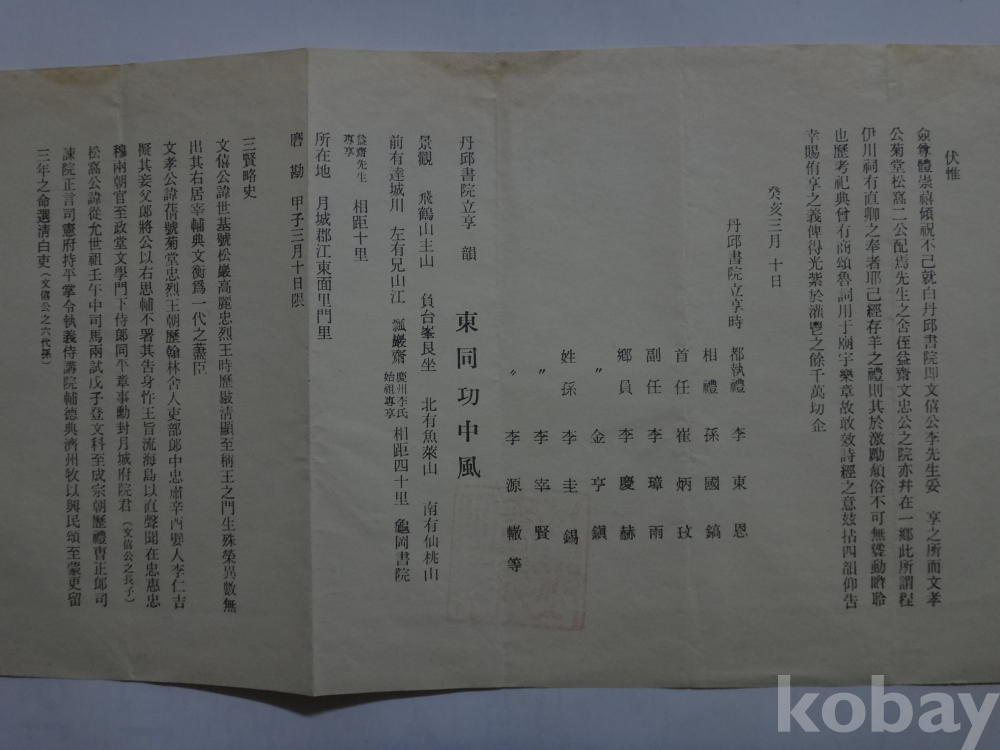 伏惟
僉尊體崇禧傾祝不已就白丹邱書院即文僖公李先生妥 享之所而文孝
公菊堂松窩二公配焉先生之舍侄益齋文忠公之院亦幷在一鄉此所謂程
伊川祠有直卿之奉者耶已經存羊之禮則其於激勵頹俗不可無聳動瞻聆
也歷考祀典曾有商頌魯詞用于廟宇樂章故敢效詩經之意玆拈四韻仰告
幸賜侑享之義俾得光紫於灌鬯之餘千萬切企
癸亥三月 十日
丹邱書院立享時 都執禮 李東恩
相禮 孫國鎬
首任 崔炳玟
副任 李璋雨
鄉員 李慶赫
〃 金亨鎭
姓孫 李圭錫
〃 李宰賢
〃 李源轍等
丹邱書院立享 韻 東同功中風
景觀 飛鶴山主山 負台峯艮坐 北有魚萊山 南有仙桃山
前有達城川 左有兄山江 瓢巖齋 慶州李氏始祖專享 相距四十里 龜岡書院
益齋先生專享 相距十里
所在地 月城郡江東面里門里
磨勘 甲子三月十日限
三賢略史
文僖公諱世基號松巖高麗忠烈王時歷敭淸顯至稱王之門生殊榮異數無
出其右居宰輔典文衡爲一代之藎臣
文孝公諱蒨號菊堂忠烈王朝歷翰林舍人吏部郎中忠肅辛酉嬖人李仁吉
擬其妾父郎將公以右思輔不署其告身忤王旨流海島以直聲聞在忠惠忠
穆兩朝官至政堂文學門下侍郎同平章事勳封月城府院君（文僖公之長子）
松窩公諱從允世祖壬午中司馬兩試戊子登文科至成宗朝歷禮曹正郎司
諫院正言司憲府持平掌令執義侍講院輔德典濟州牧以興民頌至蒙更留
三年之命選淸白吏（文僖公之六代孫）